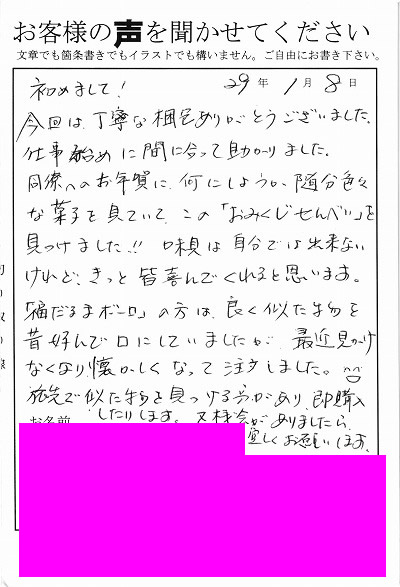 お客様の声を聞かせてください
文章でも箇条書きでもイラストでも構いません。ご自由にお書き下さい。
29年 1月 8日
初めまして!
今回は、丁寧な梱包ありがとうございました。
仕事始めに間に合って助かりました。
同僚へのお年賀に、何にしようか、随分色々
な菓子を見ていて、この「おみくじせんべい」を
見つけました!! 味見は自分では出来ない
けれど、きっと皆喜んでくれると思います。
「福だるまボーロ」の方は、良く似た物を
昔好んで口にしていましたが、最近見かけ
なくなり懐かしくなって注文しました。
旅先で似た物を見つける事があり、即購入
したりします。又機会がありましたら、
お名前
宜しくお願いします。